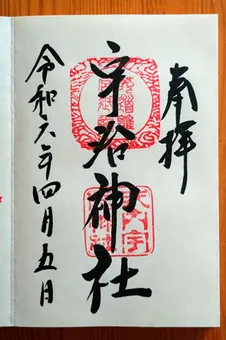 奉拝
宇治神社
令和六年四月五日